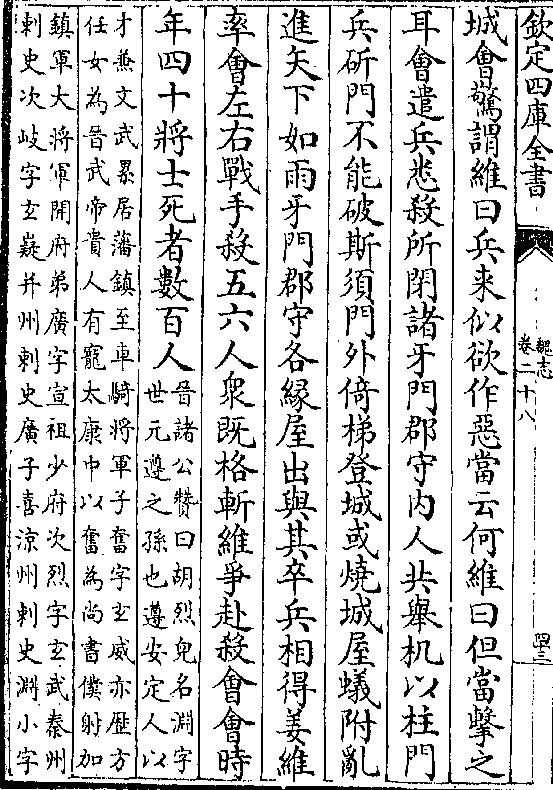 欽定四庫全書
魏志
卷二十八
城會驚謂維曰兵来似欲作惡當云何維曰但當擊之
耳會遣兵悉殺所閉諸牙門郡守内人共舉机以柱門
兵斫門不能破斯須門外倚梯登城或燒城屋蟻附亂
進矢下如雨牙門郡守各緣屋出與其卒兵相得姜維
率會左右戰手殺五六人衆既格斬維爭赴殺會會時
年四十將士死者數百人
晉諸公贊曰胡烈兒名淵字
世元遵之孫也遵安定人以
才兼文武累居藩鎮至車騎將軍子奮字玄威亦歴方
任女為晉武帝貴人有寵太康中以奮為尚書僕射加
鎮軍大將軍開府弟廣字宣祖少府次烈字玄武秦州
刺史次岐字玄嶷并州刺史廣子喜涼州刺史淵小字